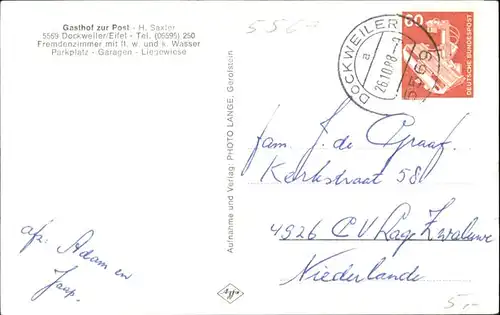 Gasthof zur Post - H. Saxler
5569 Dockweiler/Eifel - Tel. (06595) 250
Fremdenzimmer mit fl. w. und k. Wasser
Parkplatz - Garagen - Liegewiese
5560
DOCKWEILER
a
26.10.88-9
5569
60
DEUTSCHE BUNDESPOST
Aufnahme und Verlag: PHOTO LANGE, Gerolstein
fam. J. de Graaf.
Kerkstraat 58.
4926 C.V. Lage Zwaluwe
Niederlande
afz. Adam en
Jaap.
5,-